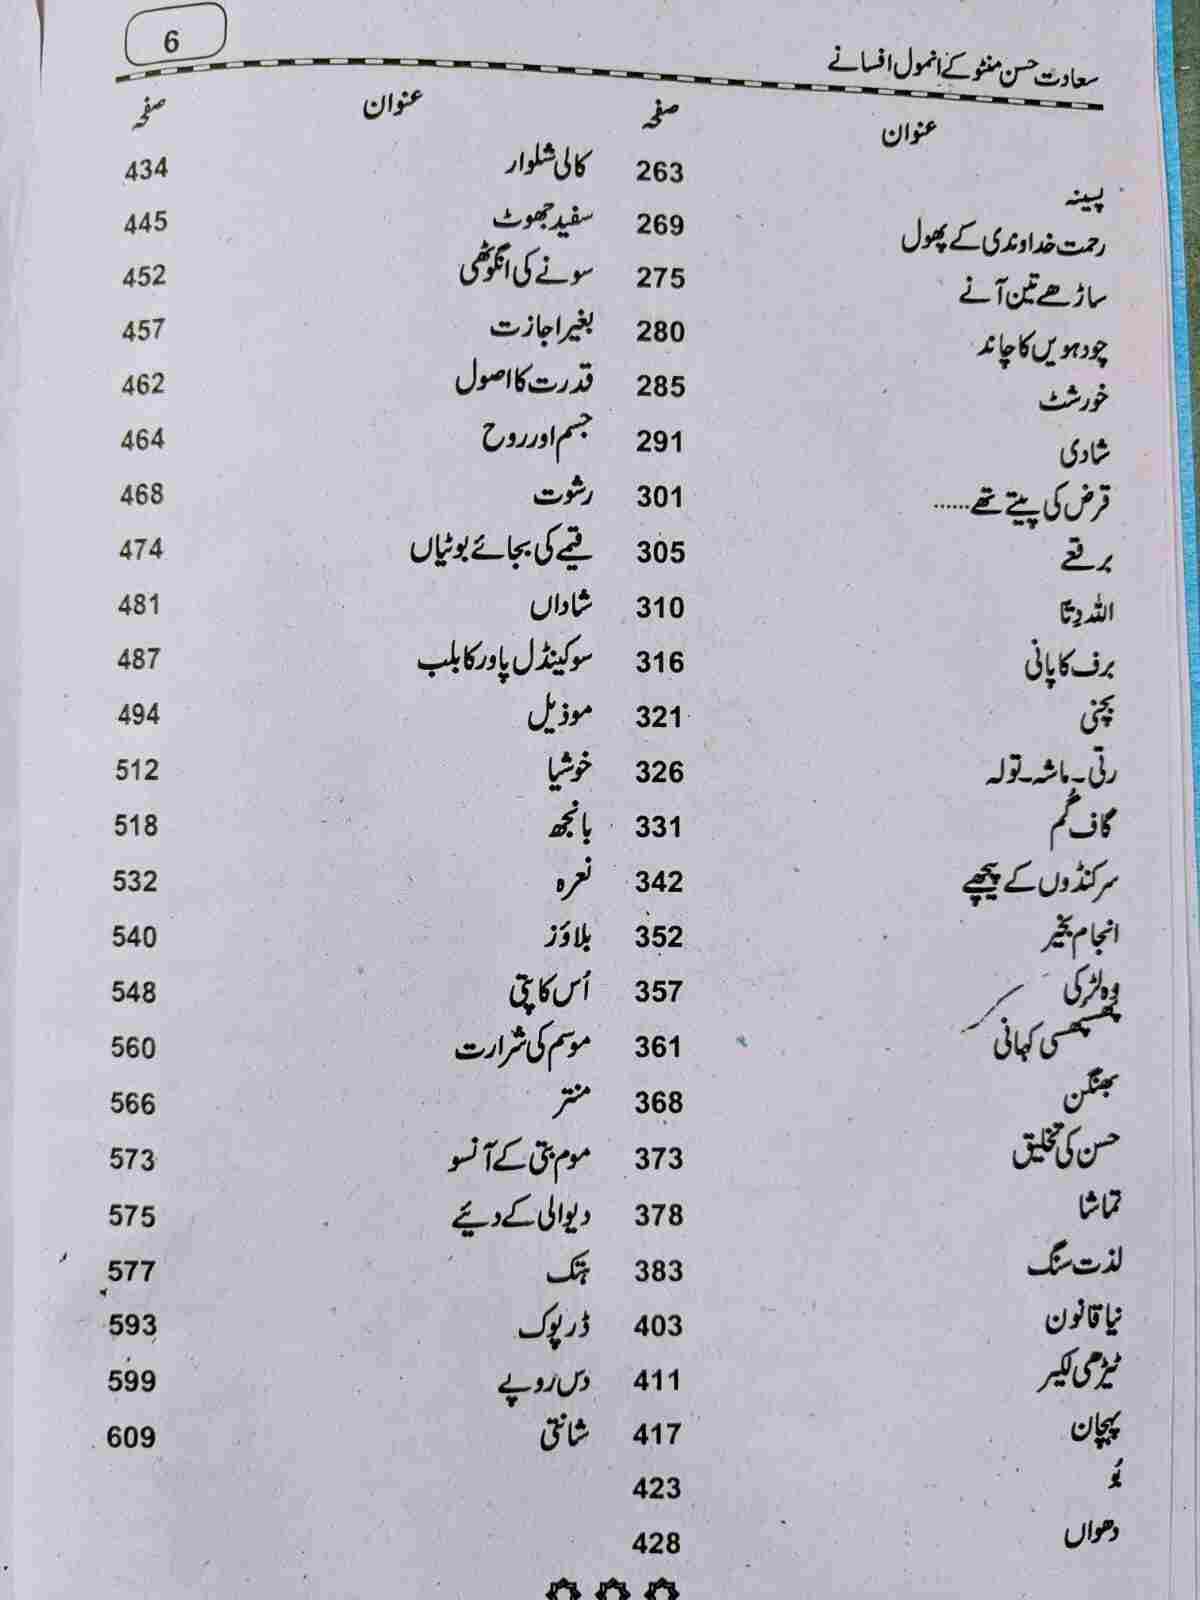 6
سعادت حسن منٹو کے انمول افسانے
عنوان صفحہ
پسینہ 263
رحمت خداوندی کے پھول 269
ساڑھے تین آنے 275
چودہویں کا چاند 280
خورشٹ 285
شادی 291
قرض کی پیتے تھے...... 301
برقعے 305
اللہ دِتّا 310
برف کا پانی 316
بچنی 321
رتی۔ماشہ۔تولہ 326
گاف گُم 331
سرکنڈوں کے پیچھے 342
انجام بخیر 352
وہ لڑکی 357
پھسپھسی کہانی 361
بھنگن 368
حسن کی تخلیق 373
تماشا 378
لذت سنگ 383
نیا قانون 403
ٹیڑھی لکیر 411
پہچان 417
بُو 423
دھواں 428
عنوان صفحہ
کالی شلوار 434
سفید جھوٹ 445
سونے کی انگوٹھی 452
بغیر اجازت 457
قدرت کا اصول 462
جسم اور روح 464
رشوت 468
قیمے کی بجائے بوٹیاں 474
شاداں 481
سو کینڈل پاور کا بلب 487
موذیل 494
خوشیا 512
بانجھ 518
نعرہ 532
بلاؤز 540
اُس کا پتی 548
موسم کی شرارت 560
منتر 566
موم بتی کے آنسو 573
دیوالی کے دئیے 575
ہتک 577
ڈرپوک 593
دس روپے 599
شانتی 609